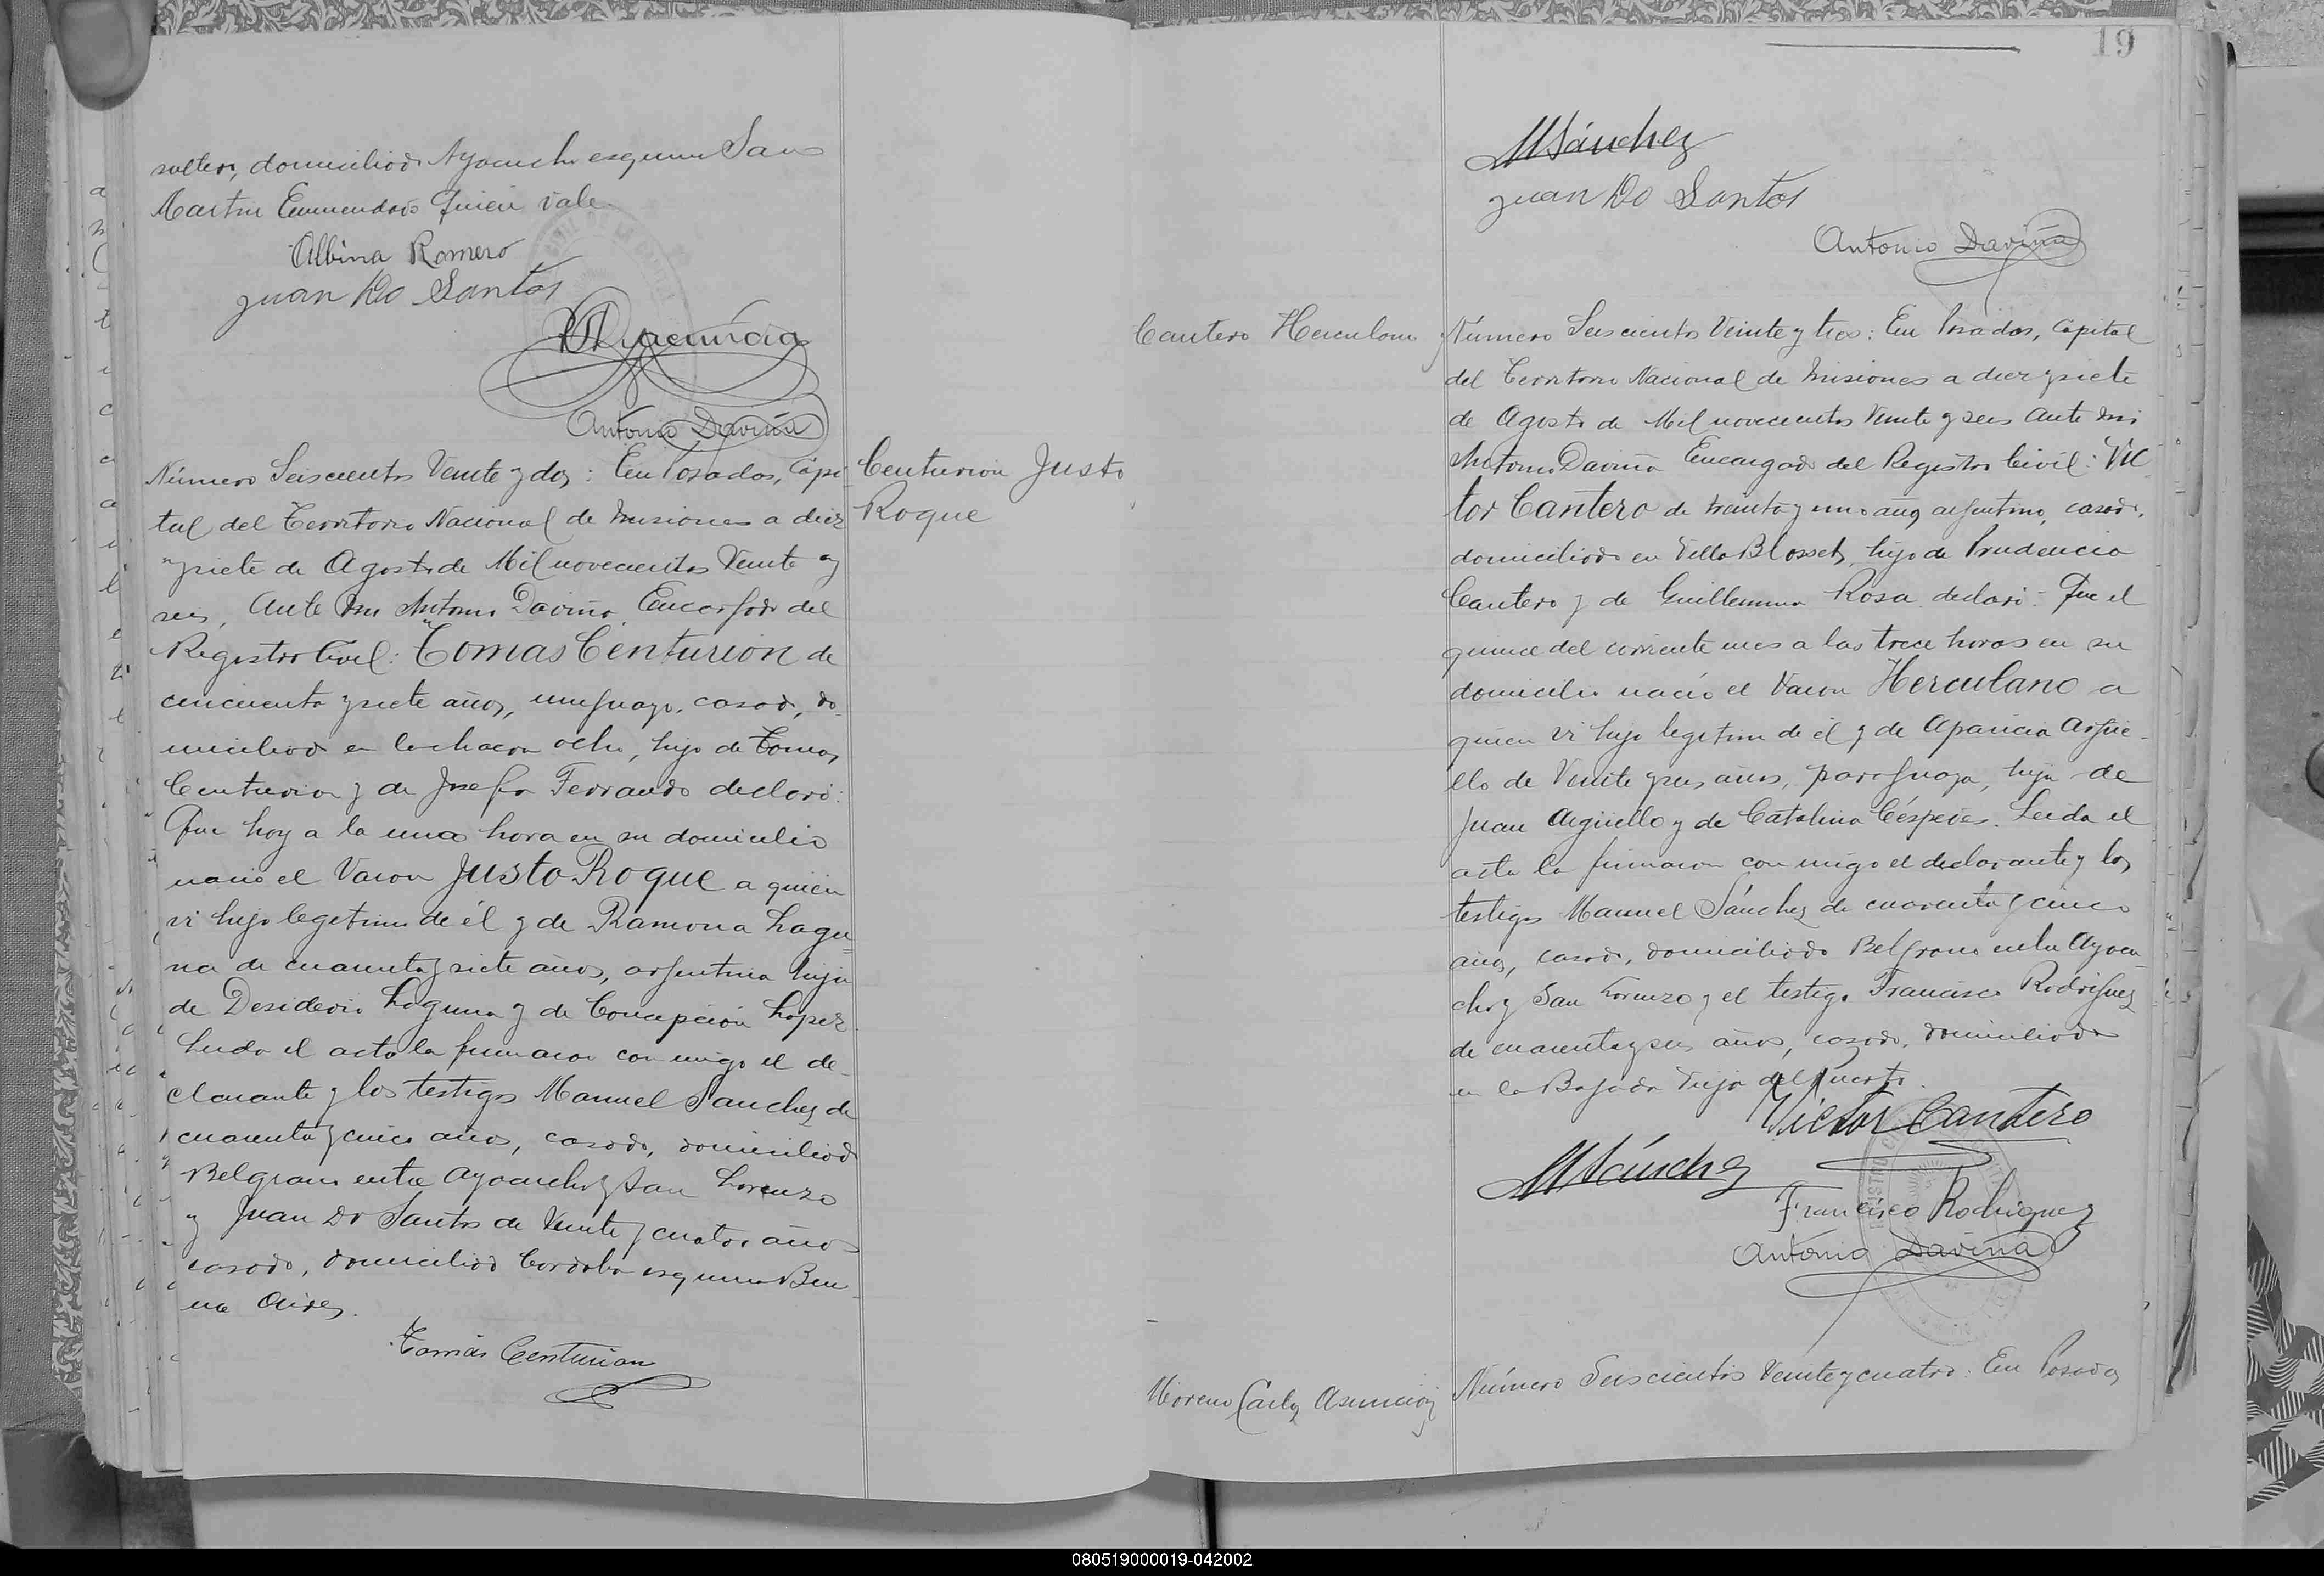 soltero, domiciliado Ayacucho esquina San
Martin Enmendado Quien vale.
Albina Romero
Juan Do Santos
Antonio Daviña
Número Seiscientos Veinte y dos: En Posadas, Capi
tal del Territorio Nacional de Misiones a diez
y siete de Agosto de Mil novecientos Veinte y
seis, Ante mi Antonio Daviña Encargado del
Registro Civil: Tomas Centurion de
cincuenta y siete años, uruguayo, casado, do
miciliado en la chacra ocho, hijo de Tomas
Centurion y de Josefa Ferrando declaró:
Que hoy a la una hora en su domicilio
nació el Varon Justo Roque a quien
vi hijo legitimo de él y de Ramona Lagu
na de cuarenta y siete años, argentina hija
de Desiderio Laguna y de Concepción Lopez
Leida el acta la firmaron con migo el de-
clarante y los testigos Manuel Sanchez de
cuarenta y cinco años, casado, domiciliado
Belgrano entre Ayacucho y San Lorenzo
y Juan Do Santos de Veinte y cuatro años
casado, domiciliado Cordoba esquina Bue
nos Aires.
Tomás Centurion
Centurion Justo
Roque
19
MSánchez
Juan Do Santos
Antonio Daviña
Cantero Herculano
Número Seiscientos Veinte y tres: En Posadas, Capital
del Territorio Nacional de Misiones a diez y siete
de Agosto de Mil novecientos Veinte y seis Ante mi
Antonio Daviña Encargado del Registro Civil: Vic
tor Cantero de treinta y uno años argentino, casado,
domiciliado en Villa Blosset, hijo de Prudencia
Cantero y de Guillermina Rosa declaró: Que el
quince del corriente mes a las trece horas en su
domicilio nació el Varon Herculano a
quien vi hijo legitimo de él y de Aparicia Argüe-
llo de Veinte y seis años, paraguaya, hija de
Juan Argüello y de Catalina Céspedes. Leida el
acta la firmaron con migo el declarante y los
testigos Manuel Sánchez de cuarenta y cinco
años, casado, domiciliado Belgrano entre Ayacu
cho y San Lorenzo y el testigo Francisco Rodriguez
de cuarenta y seis años, casado, domiciliado
en la Bajada Vieja del Puerto.
Victor Cantero
MSánchez
Francisco Rodriguez
Antonio Daviña
Moreno Carlos Asunción
Número Seiscientos Veinte y cuatro: En Posadas
080519000019-042002